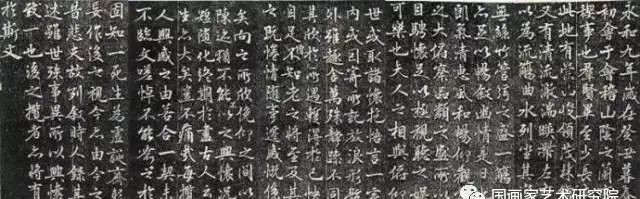 永和九年歲在癸丑暮春
初會于會稽山陰之蘭
稧事也羣賢畢至少長
此地有崇山峻領茂林
又有清流激湍暎帶左
以為流觴曲水列坐其
無絲竹管弦之盛一觴
亦足以暢敘幽情是日
朗氣清惠風和暢仰觀
之大俯察品類之盛所以
目騁懷足以極視聽之娛
可樂也夫人之相與俯仰
世或取諸懷抱悟言一室
內或因寄所託放浪形骸
外雖趣舍萬殊靜躁不同
其欣於所遇蹔得於己快
自足不知老之將至及其
之既惓情隨事遷感慨係
矣向之所欣俛仰之間以
陳迹猶不能不以之興懷
短隨化終期於盡古人云
生亦大矣豈不痛哉每攬
人興感之由若合一契未
不臨文嗟悼不能喻之於
固知一死生為虛誕齊彭
妄作後之視今亦由今之
昔悲夫故列敘時人錄其
述雖世殊事異所以興懷
致一也後之攬者亦將有
於斯文
国画家艺术研究院